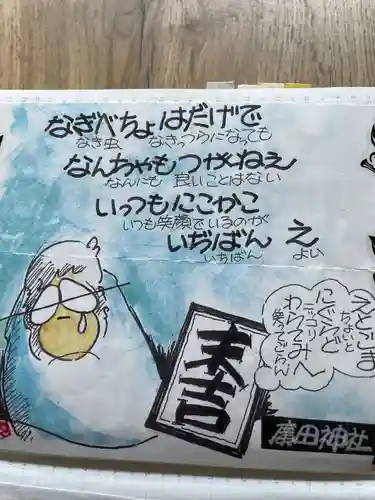 なぎべちょはだげで
なき虫 なきっつらになっても
なんちゃもつがねぇ
なんにも 良いことはない
いっつもにこかこ
いつも笑顔でいるのが
いぢばん え
いちばん よい
ちょいと
にぐらど
ニッコリ
わらてみへ
笑ってごらん
末吉
廣田神社